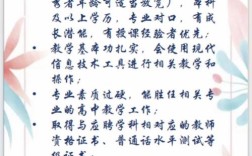 秀者年龄可适当放宽），本科
及以上学历，专业对口，有成
长潜能，有授课经验者优先；
教学基本功扎实，会使用现代
信息技术工具进行相关教学和
操作；
专业素质过硬，能胜任相关专
业的高中教学工作；
取得与应聘学科相对应的教师
资格证书、普通话水平测试等
级证书。